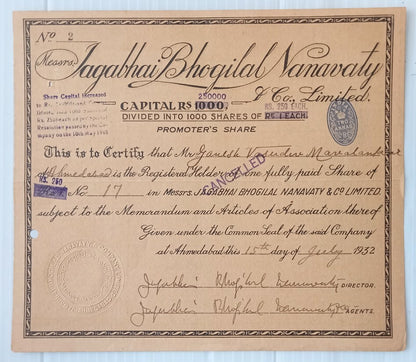 No 2
Messrs. Jagabhai Bhogilal Nanavaty
& Co., Limited.
Share Capital increased
250000
CAPITAL RS 1000.
RS. 250 EACH.
DIVIDED INTO 1000 SHARES OF RS 1 EACH.
TWO ANNAS
PROMOTER'S SHARE
This is to Certify that Mr Ganesh Vasudev Mavalankar
of Ahmedabad is the Registered Holder of One fully paid Share of
RS. 250
No 17 in MESSRS. JAGABHAI BHOGILAL NANAVATY & CO. LIMITED.
CANCELLED
subject to the Memorandum and Articles of Association thereof
Given under the Common Seal of the said Company
at Ahmedabad this 15th day of July 1932
Jagabhai Bhogilal Nanavaty DIRECTOR.
Jagabhai Bhogilal Nanavaty & Co AGENTS.